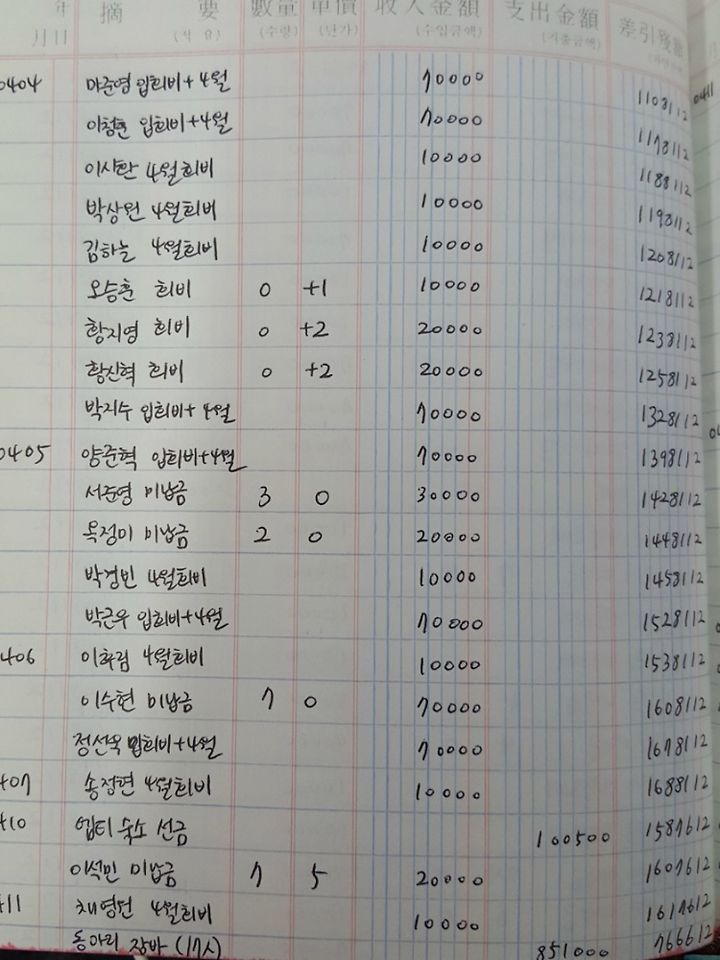 年 月日 摘要 (적요) 數量 (수량) 單價 (단가) 收入金額 (수입금액) 支出金額 (지출금액) 差引殘
0404 마준영 입회비+4월 70000 1108112
이청현 입회비+4월 70000 1178112
이사란 4월회비 10000 1188112
박상원 4월회비 10000 1198112
김하늘 4월회비 10000 1208112
오승훈 회비 0 +1 10000 1218112
황지영 회비 0 +2 20000 1238112
황신혁 회비 0 +2 20000 1258112
박지수 입회비+4월 70000 1328112
0405 양준혁 입회비+4월 70000 1398112
서준영 미납금 3 0 30000 1428112
옥정미 미납금 2 0 20000 1448112
박경빈 4월회비 10000 1458112
박근우 입회비+4월 70000 1528112
406 이화림 4월회비 10000 1538112
이수현 미납금 7 0 70000 1608112
정선욱 입회비+4월 70000 1678112
407 송정현 4월회비 10000 1688112
410 엠티 숙소 선금 100500 1587612
이석민 미납금 7 5 20000 1607612
411 채영선 4월회비 10000 1617612
동아리 잠바 (17人) 851000 766612
0411